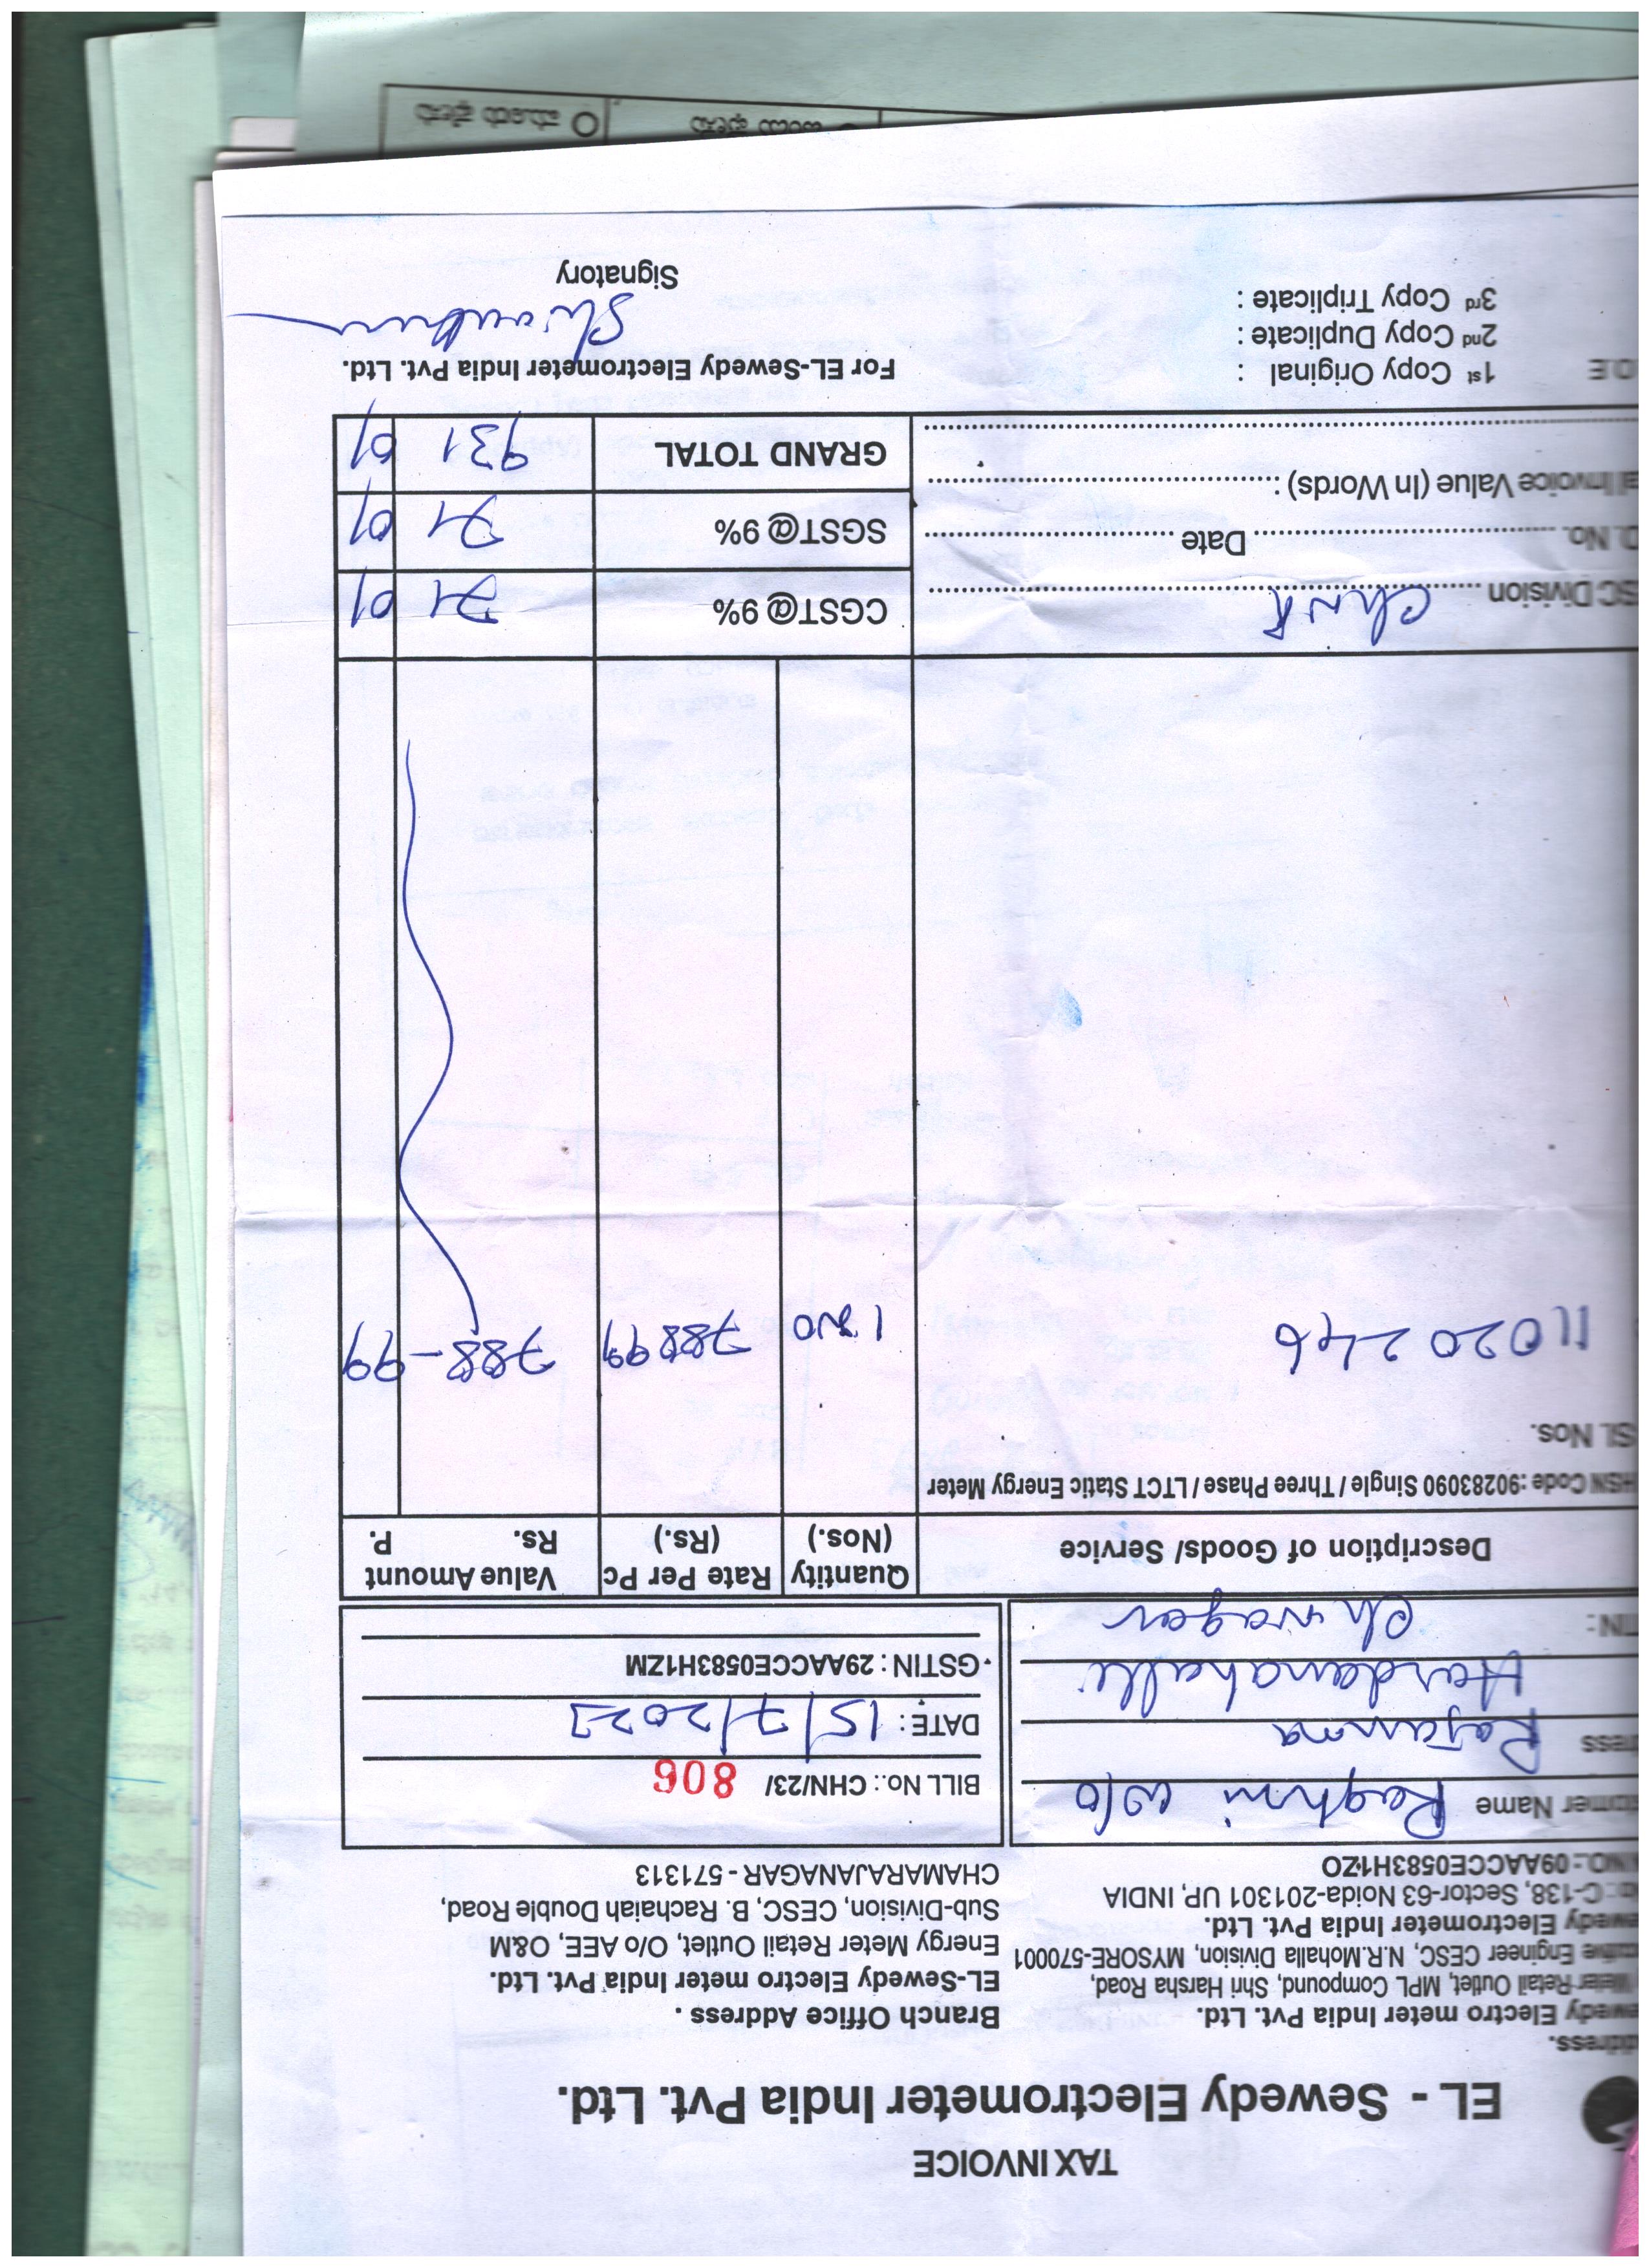 TAX INVOICE
EL - Sewedy Electrometer India Pvt. Ltd.
ddress.
ewedy Electro meter India Pvt. Ltd.
Meter Retail Outlet, MPL Compound, Shri Harsha Road,
cutive Engineer CESC, N.R.Mohalla Division, MYSORE-570001
ewedy Electrometer India Pvt. Ltd.
C-138, Sector-63 Noida-201301 UP, INDIA
NO.: 09AACCE0583H1ZO
Branch Office Address .
EL-Sewedy Electro meter India Pvt. Ltd.
Energy Meter Retail Outlet, O/o AEE, O&M
Sub-Division, CESC, B. Rachaiah Double Road,
CHAMARAJANAGAR - 571313
tomer Name Raghni w/o
ress Rajanna
Hardanahalli
TIN: Ch nagar
BILL No.: CHN/23/ 806
DATE: 15/7/2023
GSTIN : 29AACCE0583H1ZM
Description of Goods/ Service Quantity (Nos.) Rate Per Pc (Rs.) Value Amount Rs. P.
HSN Code :90283090 Single / Three Phase / LTCT Static Energy Meter
SI. Nos.
11020246 1 No 788 99 788 - 99
SC Division Ch N R CGST@ 9% 71 01
D. No. Date SGST@ 9% 71 01
al Invoice Value (In Words) : GRAND TOTAL 931 01
O.E
1st Copy Original :
2nd Copy Duplicate :
3rd Copy Triplicate :
For EL-Sewedy Electrometer India Pvt. Ltd.
Signatory